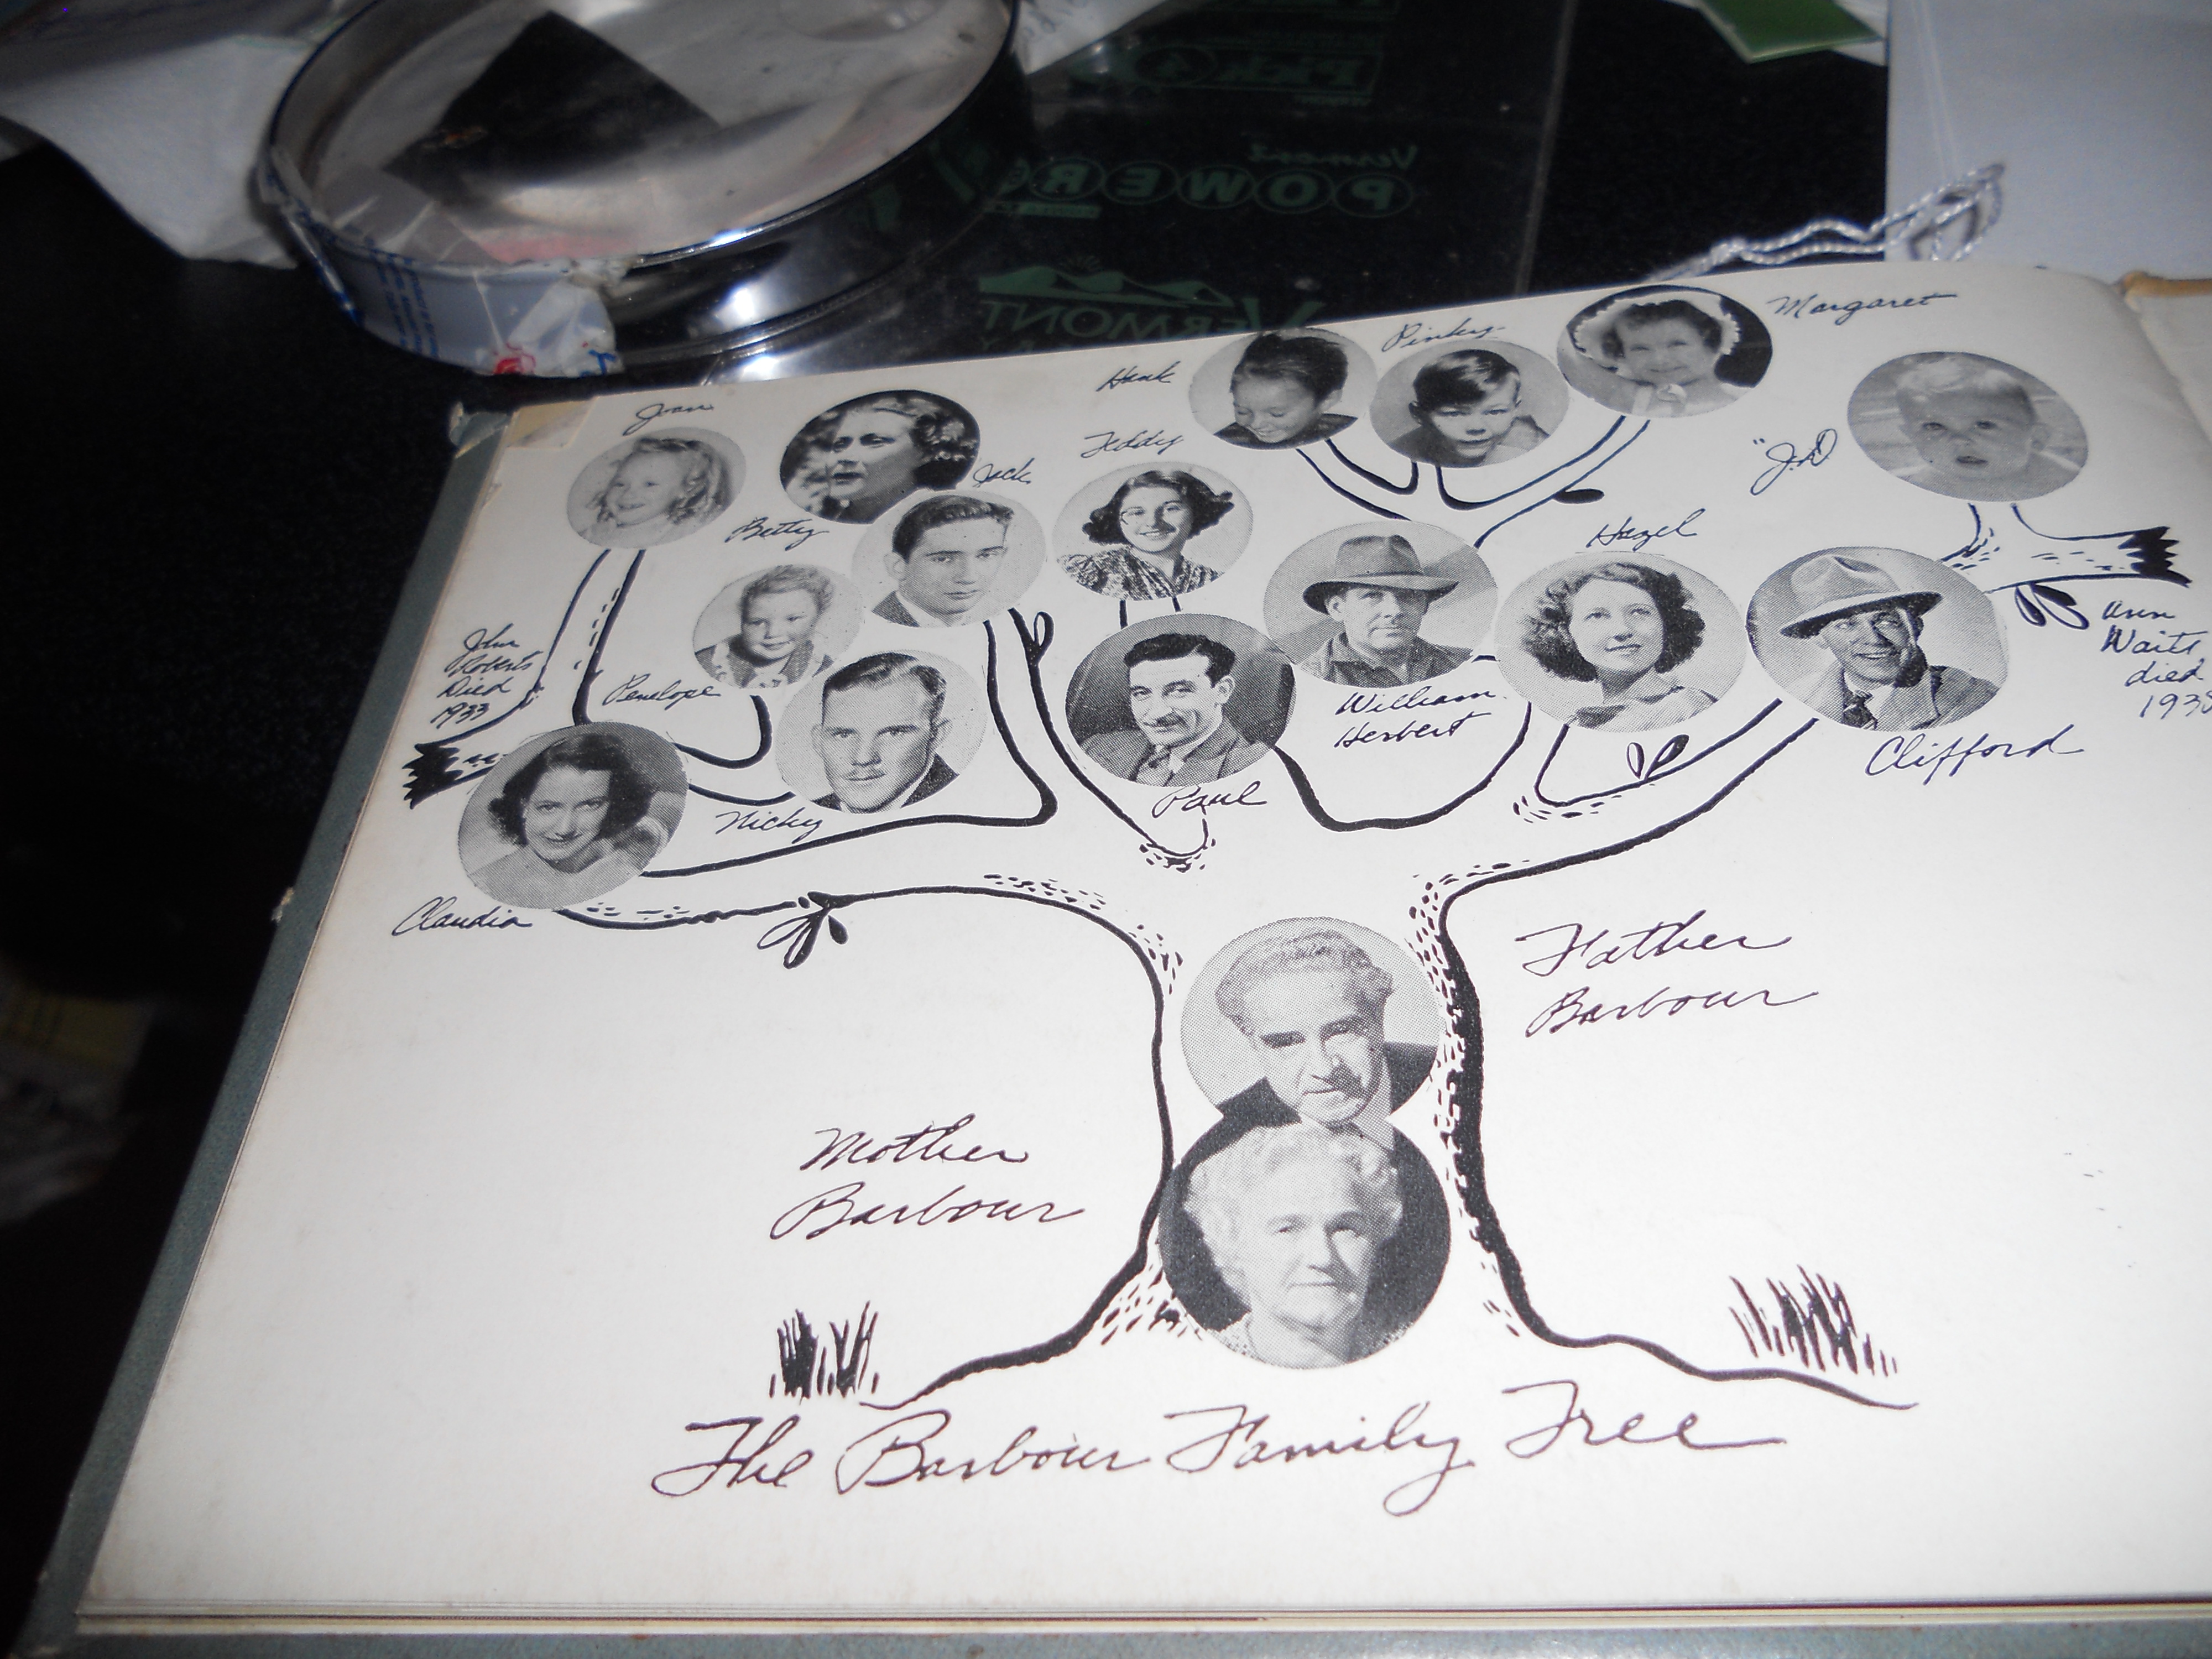 Pick
Vermont
POWERB
VERMONT
Margaret
Pinky
Hank
Joan
Teddy
Jack
"J.D
Betty
Hazel
John
Roberts
Died
1933
Penelope
Ann
Waite
died
William
Herbert
Clifford
Paul
Nicky
Claudia
Father
Barbour
Mother
Barbour
The Barbour Family Tree